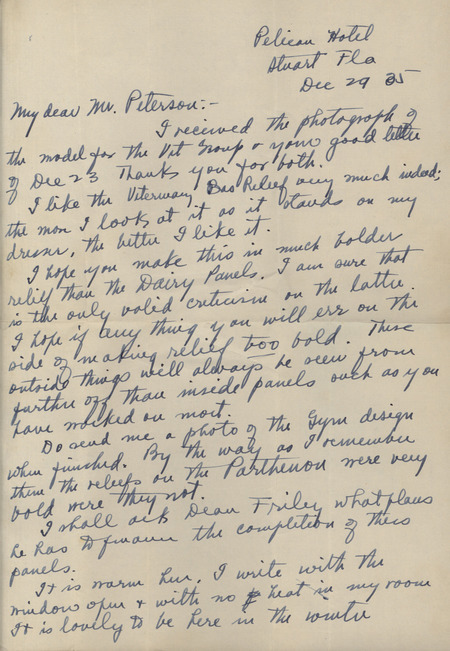 Pelican Hotel
Stuart Fla
Dec 29 35
My dear Mr. Peterson:-
I received the photograph of
the model for the Vet Group & your good letter
of Dec 23 Thanks you for both.
I like the Veterinary Bas Relief very much indeed;
the more I look at it as it stands on my
dresser, the better I like it.
I hope you make this in much bolder
relief than the Dairy Panels. I am sure that
is the only valid criticism on the latter.
I hope if any thing you will err on the
side of making relief too bold. These
outside things will always be seen from
further off than inside panels such as you
have worked on most.
Do send me a photo of the Gym design
when finished. By the way as I remember
them the reliefs on the Parthenon were very
bold were they not.
I shall ask Dean Friley what plans
he has to finance the completion of these
panels.
It is warm here. I write with the
window open & with no heat in my room
It is lovely to be here in the winter